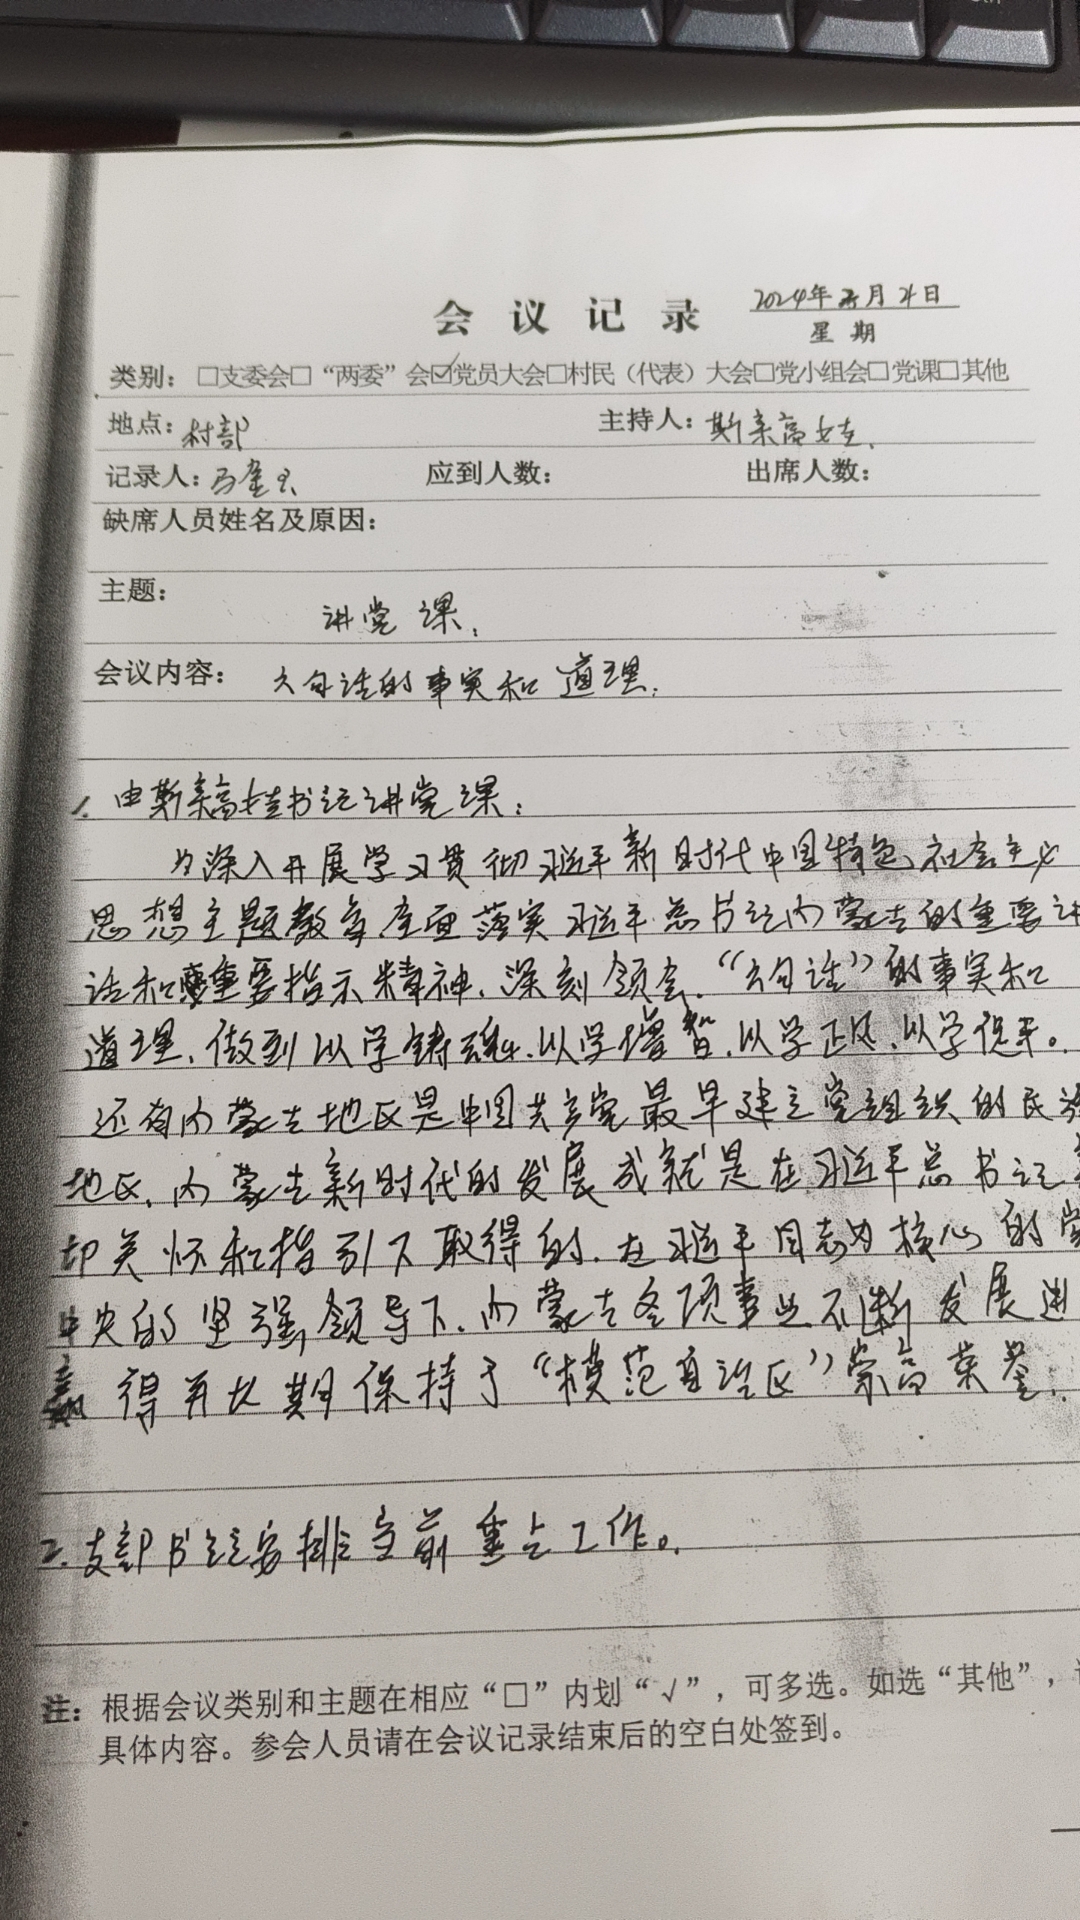 会议记录
2024年 月 日
星期
类别：□支委会□“两委”会☑党员大会□村民（代表）大会□党小组会□党课□其他
地点：村部 主持人：斯
记录人：马 应到人数： 出席人数：
缺席人员姓名及原因：
主题：
讲党课.
会议内容： 六句话的事实和道理.
1. 由斯 书记讲党课：
为深入开展学习贯彻习近平新时代中国特色社会主义
思想主题教育,全面落实习近平总书记内蒙古的重要讲
话和重要指示精神.深刻领会.“六句话”的事实和
道理.做到以学铸魂.以学增智.以学正风.以学促干。
还有内蒙古地区是中国共产党最早建立党组织的民族
地区.内蒙古新时代的发展成就是在习近平总书记亲
切关怀和指引下取得的.在习近平同志为核心的党
中央的坚强领导下.内蒙古各项事业不断发展进
赢得并长期保持于“模范自治区”崇高荣誉.
2.支部书记安排当前重点工作。
注：根据会议类别和主题在相应“□”内划“√”，可多选。如选“其他”，
具体内容。参会人员请在会议记录结束后的空白处签到。